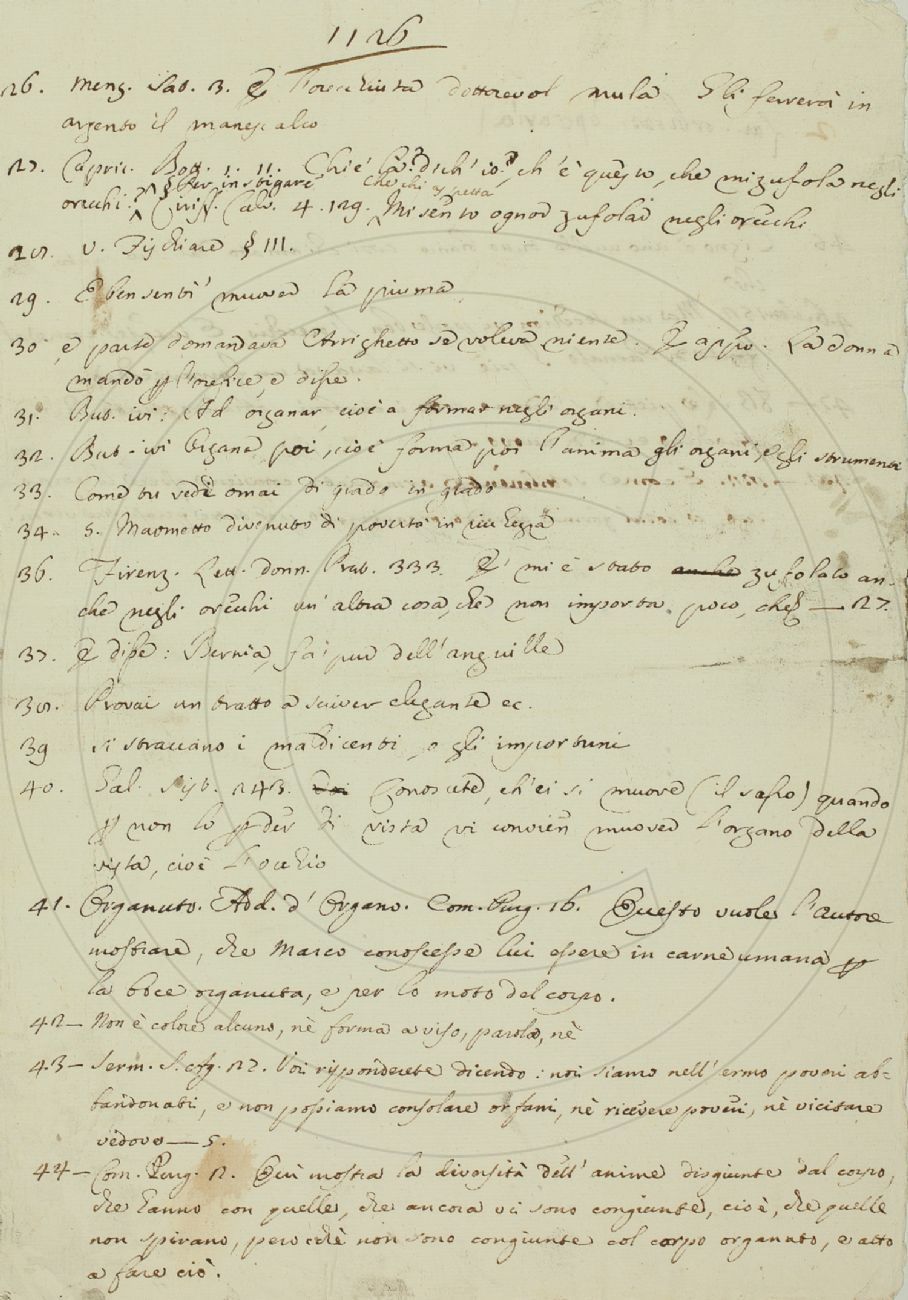 1126
26. Menz. Sat. 3. E l'orecchiuta dottorevol mula Gli ferrerai in
argento il manescalco
27. Capric. Bott. 1. 11. Chi è là? dich' io? ch' è questo, che mi zufola negli
§ Per instigare Che chi
orecchi? Ciriff. Calv. 4. 129. Mi sento ognor zufolar negli orecchi
28. v. Fischiare § III.
29. E ben sentì muover la piuma
30 e parte domandava Arrighetto se voleva niente. E appo. La donna
mandò p l'orefice, e disse.
31. But. ivi: Ad organar, cioè a formar negli organi.
32. But. ivi Organa poi, cioè forma poi l'anima gli organi, e gli strumenti
33. Come tu vedi omai di grado in grado
34. S. Maometto divenuto di povertà in ricchezza
36. Firenz. Lett. Donn. Prat. 333. E' mi è stato anche zufolato an-
che negli orecchi un' altra cosa, che non importa poco, che — 27.
37. E disse: Bernia, fa' pur dell' anguille
38. Provai un tratto a scriver elegante ec.
39 si straccano i maldicenti, o gli importuni
40. Gal. Sist. 243. Conoscete, ch' ei si muove (il sasso) quando
p non lo pder di vista vi convien muover l'organo della
vista, cioè l'occhio
41. Organuto. Add. d' Organo. Com. Purg. 16. Questo vuole l'autore
mostrare, che Marco conoscesse lui essere in carne umana p
la boce organuta, e per lo moto del corpo.
42 — Non è colore alcuno, nè forma a viso, parola, nè
43 — Serm. S. Ag. 22. Voi risponderete dicendo: noi siamo nell' ermo poveri ab-
bandonati, e non possiamo consolare orfani, nè ricevere poveri, nè vicitare
vedove — 5.
44 — Com. Purg. 2. Qui mostra la diversità dell' anime disgiunte dal corpo,
che hanno con quelle, che ancora vi sono congiunte, cioè, che quelle
non spirano, però chè non sono congiunte col corpo organuto, e atto
a fare ciò.